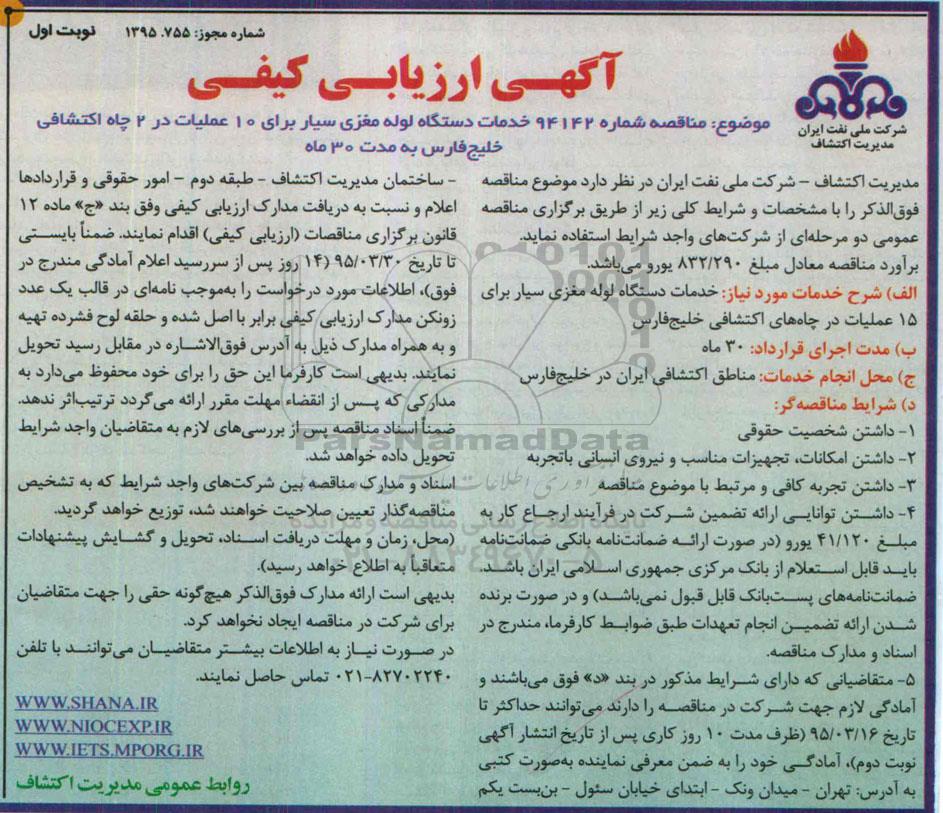 شماره مجوز: ۷۵۵. ۱۳۹۵
نوبت اول
شرکت ملی نفت ایران
مدیریت اکتشاف
آگهی ارزیابی کیفی
موضوع: مناقصه شماره ۹۴۱۴۲ خدمات دستگاه لوله مغزی سیار برای ۱۰ عملیات در ۲ چاه اکتشافی
خلیج‌فارس به مدت ۳۰ ماه
مدیریت اکتشاف – شرکت ملی نفت ایران در نظر دارد موضوع مناقصه
فوق‌الذکر را با مشخصات و شرایط کلی زیر از طریق برگزاری مناقصه
عمومی دو مرحله‌ای از شرکت‌های واجد شرایط استفاده نماید.
برآورد مناقصه معادل مبلغ ۸۳۲/۲۹۰ یورو می‌باشد.
الف) شرح خدمات مورد نیاز: خدمات دستگاه لوله مغزی سیار برای
۱۵ عملیات در چاه‌های اکتشافی خلیج‌فارس
ب) مدت اجرای قرارداد: ۳۰ ماه
ج) محل انجام خدمات: مناطق اکتشافی ایران در خلیج‌فارس
د) شرایط مناقصه‌گر:
۱- داشتن شخصیت حقوقی
۲- داشتن امکانات، تجهیزات مناسب و نیروی انسانی باتجربه
۳- داشتن تجربه کافی و مرتبط با موضوع مناقصه
۴- داشتن توانایی ارائه تضمین شرکت در فرآیند ارجاع کار به
مبلغ ۴۱/۱۲۰ یورو (در صورت ارائه ضمانت‌نامه بانکی ضمانت‌نامه
باید قابل استعلام از بانک مرکزی جمهوری اسلامی ایران باشد.
ضمانت‌نامه‌های پست‌بانک قابل قبول نمی‌باشد) و در صورت برنده
شدن ارائه تضمین انجام تعهدات طبق ضوابط کارفرما، مندرج در
اسناد و مدارک مناقصه.
۵- متقاضیانی که دارای شرایط مذکور در بند «د» فوق می‌باشند و
آمادگی لازم جهت شرکت در مناقصه را دارند می‌توانند حداکثر تا
تاریخ ۹۵/۰۳/۱۶ (ظرف مدت ۱۰ روز کاری پس از تاریخ انتشار آگهی
نوبت دوم)، آمادگی خود را به ضمن معرفی نماینده به‌صورت کتبی
به آدرس: تهران - میدان ونک - ابتدای خیابان سئول - بن‌بست یکم
- ساختمان مدیریت اکتشاف - طبقه دوم - امور حقوقی و قراردادها
اعلام و نسبت به دریافت مدارک ارزیابی کیفی وفق بند «ج» ماده ۱۲
قانون برگزاری مناقصات (ارزیابی کیفی) اقدام نمایند. ضمناً بایستی
تا تاریخ ۹۵/۰۳/۳۰ (۱۴ روز پس از سررسید اعلام آمادگی مندرج در
فوق)، اطلاعات مورد درخواست را به‌موجب نامه‌ای در قالب یک عدد
زونکن مدارک ارزیابی کیفی برابر با اصل شده و حلقه لوح فشرده تهیه
و به همراه مدارک ذیل به آدرس فوق‌الاشاره در مقابل رسید تحویل
نمایند. بدیهی است کارفرما این حق را برای خود محفوظ می‌دارد به
مدارکی که پس از انقضاء مهلت مقرر ارائه می‌گردد ترتیب‌اثر ندهد.
ضمناً اسناد مناقصه پس از بررسی‌های لازم به متقاضیان واجد شرایط
تحویل داده خواهد شد.
اسناد و مدارک مناقصه بین شرکت‌های واجد شرایط که به تشخیص
مناقصه‌گذار تعیین صلاحیت خواهند شد، توزیع خواهد گردید.
(محل، زمان و مهلت دریافت اسناد، تحویل و گشایش پیشنهادات
متعاقباً به اطلاع خواهد رسید).
بدیهی است ارائه مدارک فوق‌الذکر هیچ‌گونه حقی را جهت متقاضیان
برای شرکت در مناقصه ایجاد نخواهد کرد.
در صورت نیاز به اطلاعات بیشتر متقاضیان می‌توانند با تلفن
۰۲۱-۸۲۷۰۲۲۴۰ تماس حاصل نمایند.
WWW.SHANA.IR
WWW.NIOCEXP.IR
WWW.IETS.MPORG.IR
روابط عمومی مدیریت اکتشاف
ParsNamadData
پایگاه اطلاع رسانی مناقصه و مزایده